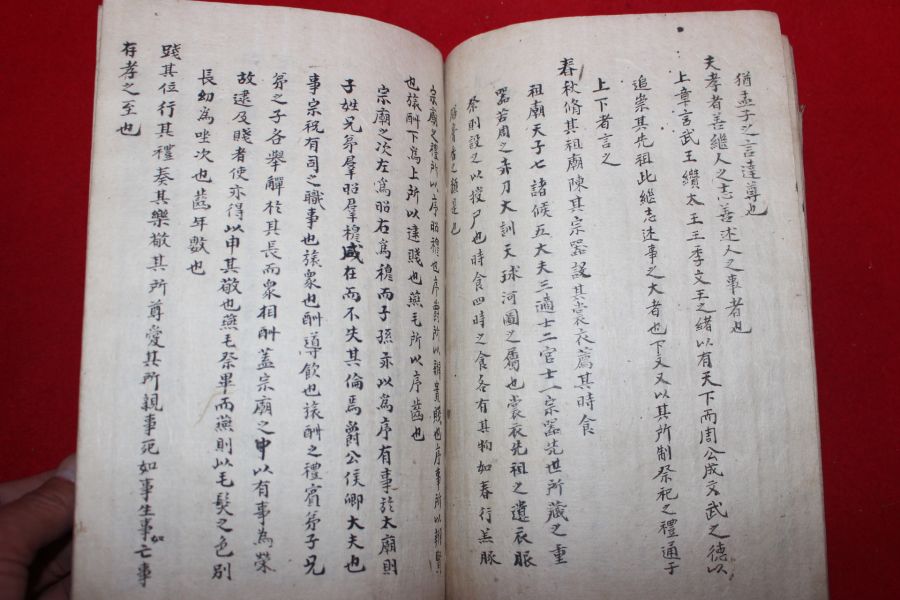 猶孟子之言達尊也
夫孝者善繼人之志善述人之事者也
上章言武王纘太王王季文王之緖以有天下而周公成文武之德以
追崇其先祖此繼志述事之大者也下文又以其所制祭祀之禮通于
上下者言之
春秋脩其祖廟陳其宗器設其裳衣薦其時食
祖廟天子七諸侯五大夫三適士二官士一宗器先世所藏之重
器若周之赤刀大訓天球河圖之屬也裳衣先祖之遺衣服
祭則設之以授尸也時食四時之食各有其物如春行羔豚
膳膏香之類是也
宗廟之禮所以序昭穆也序爵所以辨貴賤也序事所以辨賢
也旅酬下爲上所以逮賤也燕毛所以序齒也
宗廟之次左爲昭右爲穆而子孫亦以爲序有事於太廟則
子姓兄弟羣昭羣穆咸在而不失其倫焉爵公侯卿大夫也
事宗祝有司之職事也旅衆也酬導飮也旅酬之禮賓弟子兄
弟之子各舉觶於其長而衆相酬蓋宗廟之中以有事爲榮
故逮及賤者使亦得以申其敬也燕毛祭畢而燕則以毛髮之色別
長幼爲坐次也齒年數也
踐其位行其禮奏其樂敬其所尊愛其所親事死如事生事亡如事
存孝之至也